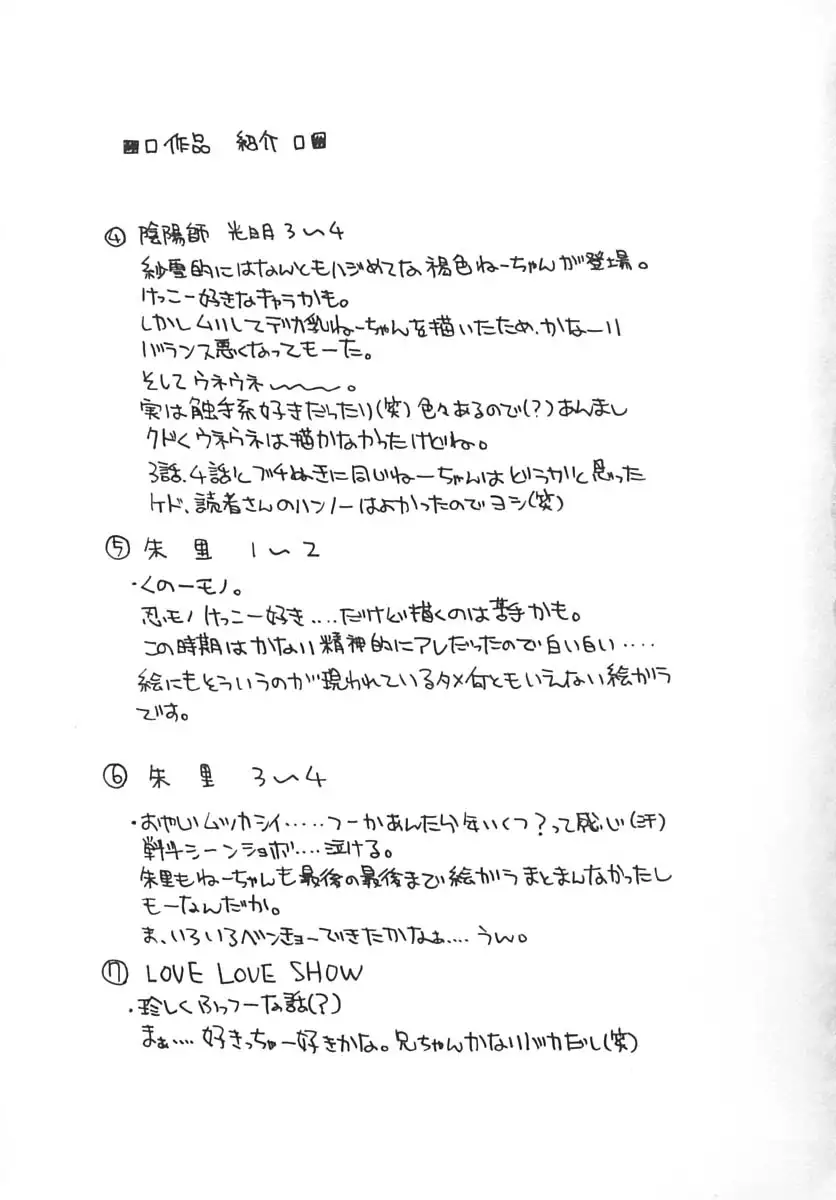 ■□作品 紹介□■
④ 陰陽師 光明3〜4
紗雪的にはなんともハジめてな褐色ねーちゃんが登場。
けっこー好きなキャラかも。
しかしムリしてデカ乳ねーちゃんを描いたため、かなーり
バランス悪くなってもーた。
そしてウネウネ〜〜〜。
実は触手系好きだったり(笑)色々あるので(?)あんまし
クドくウネウネは描かなかったけどね。
3話、4話とブチぬきに同じねーちゃんはどうかと思った
ケド、読者さんのハンノーはよかったのでヨシ(笑)
⑤ 朱里 1〜2
・くの一モノ。
忍モノけっこー好き‥‥だけど描くのは苦手かも。
この時期はかなり精神的にアレだったので白い白い‥‥
絵にもそういうのが現われているタメ何ともいえない絵ガラ
です。
⑥ 朱里 3〜4
・おやじムツカシイ‥‥‥つーかあんたら年いくつ?って感じ(汗)
戦斗シーンショボ‥‥泣ける。
朱里もねーちゃんも最後の最後まで絵ガラまとまんなかったし
もーなんだか。
ま、いろいろベンキョーできたかなぁ‥‥うん。
⑦ LOVE LOVE SHOW
・珍しくふっつーな話(?)
まぁ‥‥好きっちゃー好きかな。兄ちゃんかなりバカだし(笑)